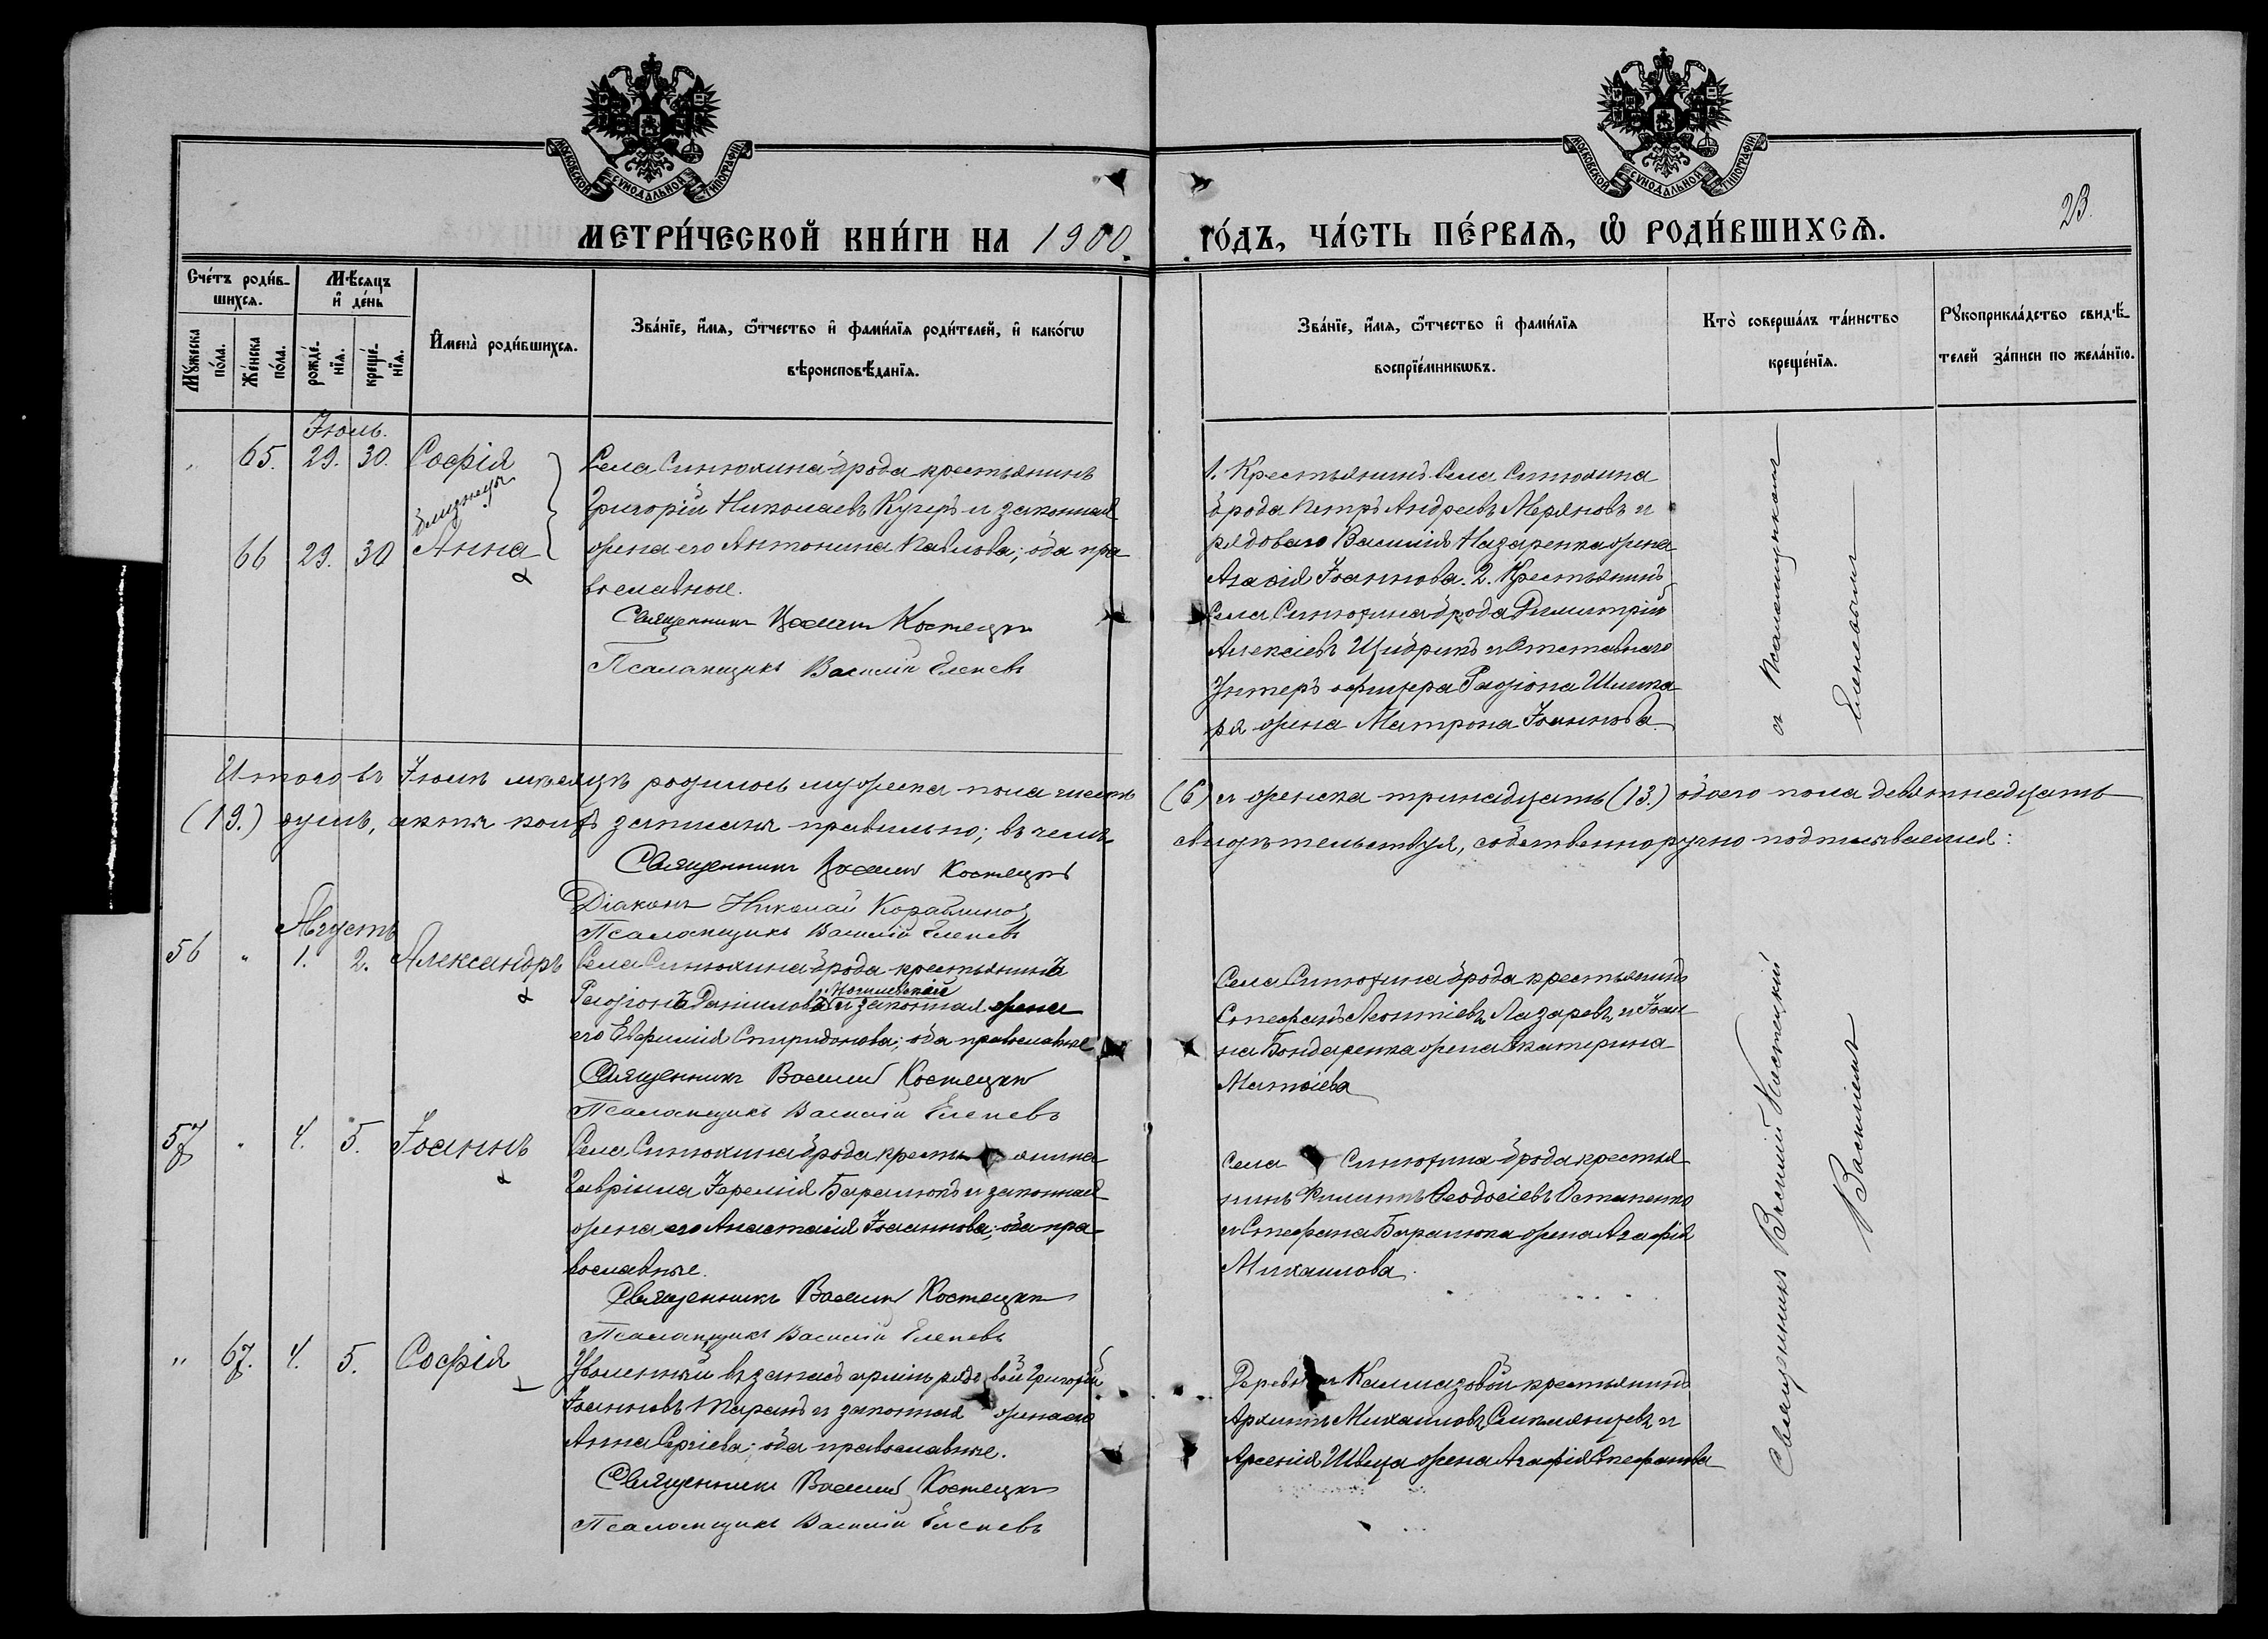 МОСКОВСКОЙ СѴНОДАЛЬНОЙ ТИПОГРАФІИ
МОСКОВСКОЙ СѴНОДАЛЬНОЙ ТИПОГРАФІИ
23.
МЕТРИ́ЧЕСКОЙ КНИ́ГИ НА 1900.
ГО́ДЪ, ЧА́СТЬ ПЕ́РВАѦ, Ѽ РОДИ́ВШИХСѦ.
Сче́тъ роди́в-
шихсѧ.
Мꙋ́жеска по́ла.
Же́нска по́ла.
Мѣ́сѧцъ
и҆ де́нь
рожде́-нїѧ.
креще́-нїѧ.
И҆мена̀ роди́вшихсѧ.
Зва́нїе, и҆́мѧ, ѻ҆́тчество и҆ фами́лїѧ роди́телей, и҆ како́гѡ
вѣроисповѣ́данїѧ.
Зва́нїе, и҆́мѧ, ѻ҆́тчество и҆ фами́лїѧ
воспрїе́мникѡвъ.
Кто̀ соверша́лъ та́инство
креще́нїѧ.
Рꙋкоприкла́дство свидѣ́-
телей за́писи по жела́нїю.
Іюль.
" 65. 29. 30. Софія
близнецы
66 29. 30 Анна
Села Синюхина-брода крестьянинъ
Григорій Николаевъ Кучеръ и законная
жена его Антонина Павлова; оба пра-
вославные.
Священникъ Василій Костецкій
Псаломщикъ Василій Еленевъ
1. Крестьянинъ Села Синюхина
брода Петръ Андреевъ Меряновъ и
рядоваго Василія Назаренка жена
Агафія Іоаннова. 2. Крестьянинъ
Села Синюхина брода Димитрій
Алексіевъ Цибрикъ и Отставнаго
Унтеръ офицера Родіона Шинка-
ря жена Матрона Іоаннова.
съ Псаломщикомъ
Еленевымъ
Итого въ Іюлѣ мѣсяцѣ родилось мужеска пола шесть
(6) и женска тринадцать (13.) обоего пола девятнадцать
(19.) душъ, акты коихъ записаны правильно; въ чемъ
свидѣтельствуя, собственноручно подписываемся:
Священникъ Василій Костецкій
Діаконъ Николай Кораблиновъ
Псаломщикъ Василій Еленевъ
Августъ
56 " 1. 2. Александръ
Села Синюхина-брода крестьянинъ
Родіонъ Даніиловъ и законная жена
его Евфимія Спиридонова; оба православные
Священникъ Василій Костецкій
Псаломщикъ Василій Еленевъ
Села Синюхина брода крестьянинъ
Стефанъ Леонтіевъ Лазаревъ, и Іоан-
на Бондаренка жена Екатерина
Матвіева
57 " 4. 5. Іоаннъ
Села Синюхина брода крестьянина
Гавріила Іеремія Баралюкъ и законная
жена его Анастасія Іоаннова; оба пра-
вославные.
Священникъ Василій Костецкій
Псаломщикъ Василій Еленевъ
Села Синюхина-брода крестья-
нинъ Филиппъ Феодосіевъ Остапенко
и Стефана Баралюка жена Агафія
Михаилова.
" 67. 4. 5. Софія
Уволенный въ запасъ арміи рядовой Григорій
Іоанновъ Таранъ и законная жена его
Анна Сергіева; оба православные.
Священникъ Василій Костецкій
Псаломщикъ Василій Еленевъ
Деревни Калмазовой крестьянинъ
Архипъ Михаиловъ и
Арсенія Швеца жена Агафія Стефанова
Священникъ Василій Костецкій
Василіемъ